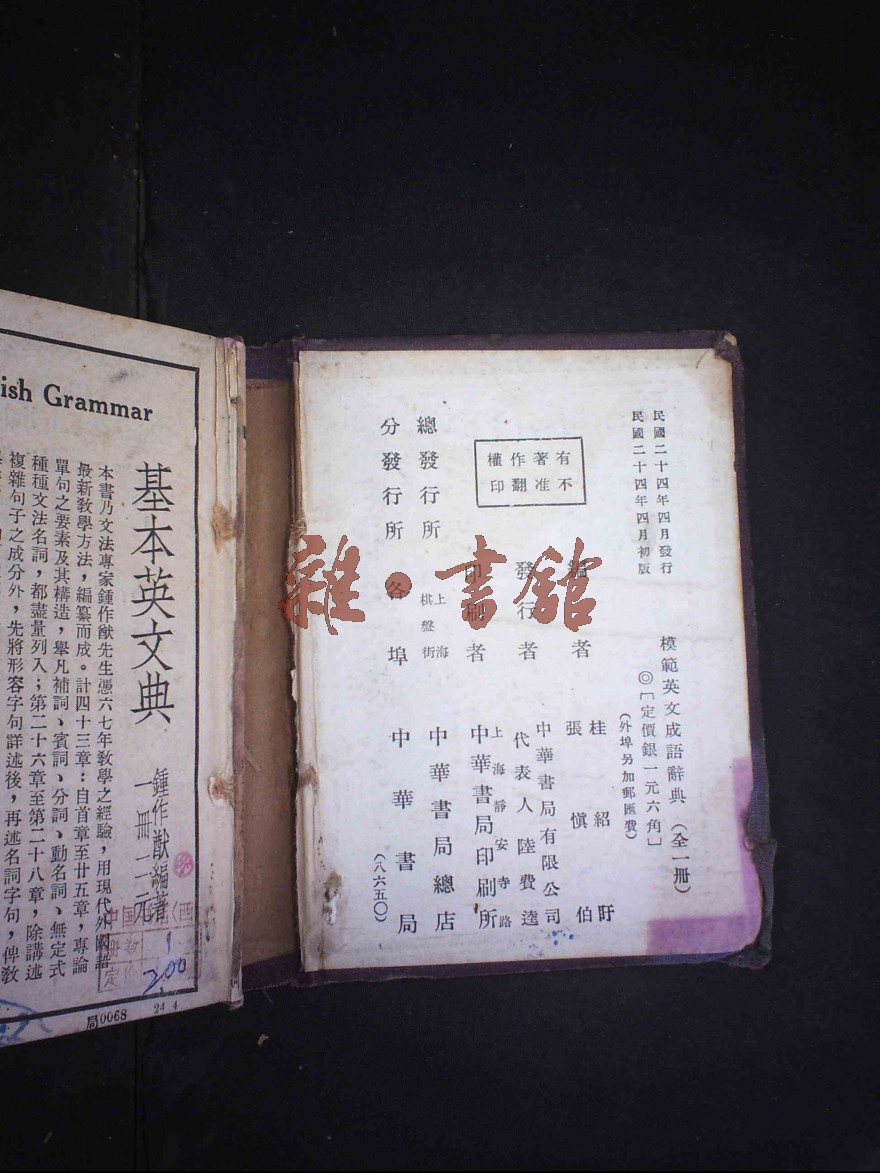 民國二十四年四月發行
民國二十四年四月初版
模範英文成語辭典(全一冊)
◎〔定價銀一元六角〕
(外埠另加郵匯費)
有著作權
不准翻印
編者
桂紹盱
張慎伯
發行者
中華書局有限公司
代表人 陸費逵
印刷者
上海靜安寺路
中華書局印刷所
總發行所
上海
棋盤街
中華書局總店
分發行所
各埠
中華書局
(八六五〇)
雜·書館
ish Grammar
基本英文典
鍾作猷編著
一冊二元
本書乃文法專家鍾作猷先生憑六七年教學之經驗,用現代外國語
最新教學方法,編纂而成。計四十三章:自首章至廿五章,專論
單句之要素及其構造,舉凡補詞、賓詞、分詞、動名詞、無定式
種種文法名詞,都盡量列入;第二十六章至第二十八章,除講述
複雜句子之成分外,先將形容字句詳述後,再述名詞字句,俾教
中国
册数 1
定价 200
局0068
24 4